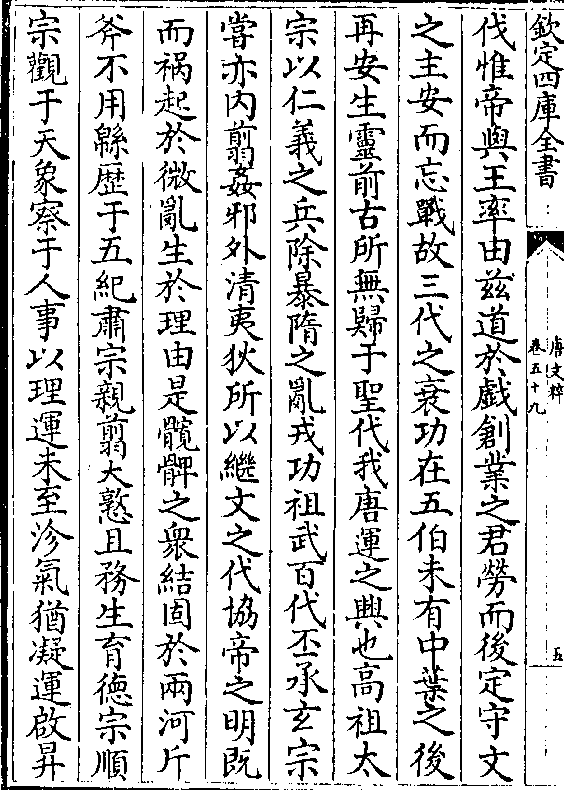 欽定四庫全書
唐文粹
卷五十九
五
伐惟帝與王率由兹道於戲創業之君勞而後定守文
之主安而忘戰故三代之衰功在五伯未有中葉之後
再安生靈前古所無歸于聖代我唐運之興也高祖太
宗以仁義之兵除暴隋之亂戎功祖武百代丕承玄宗
當亦内翦姦邪外清夷狄所以繼文之代協帝之明既
而禍起於微亂生於理由是髖髀之衆結固於兩河斤
斧不用緜歴于五紀肅宗親翦大憝且務生育德宗順
宗觀于天象察于人事以理運未至沴氣猶凝運啟昇